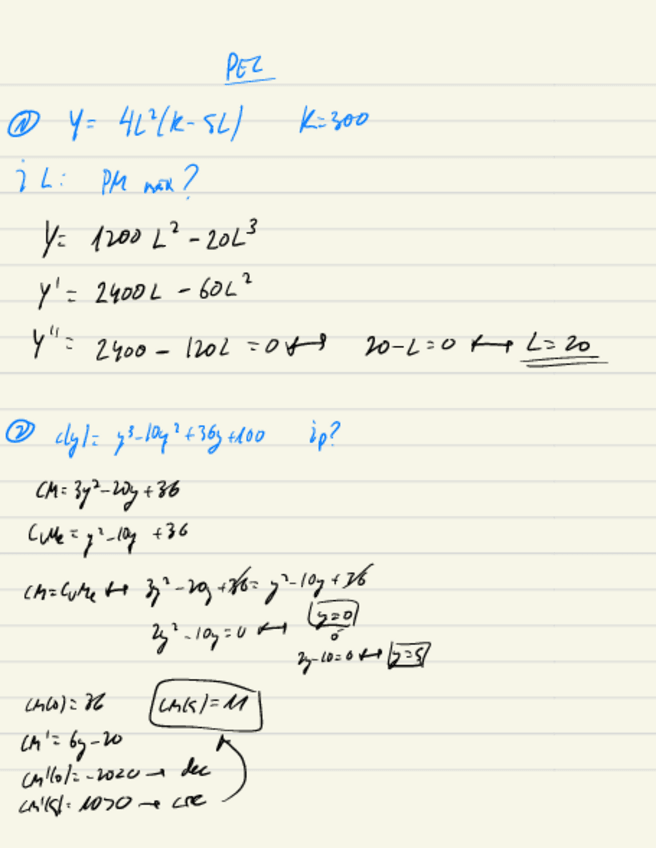 PEC
① Y = 4L²(K - 5L) K = 300
¿ L: PM max?
Y = 1200 L² - 20L³
Y' = 2400L - 60L²
Y'' = 2400 - 120L = 0 ↔ 20 - L = 0 ↔ L = 20
② c(y) = y³ - 10y² + 36y + 100 ¿p?
CM = 3y² - 20y + 36
CVMe = y² - 10y + 36
CM = CVMe ↔ 3y² - 20y + 36 = y² - 10y + 36
2y² - 10y = 0 ↔ y = 0
o
2y - 10 = 0 ↔ y = 5
CM(0) = 36 CM(5) = 11
CM' = 6y - 20
CM'(0) = -20<0 → dec
CM'(5) = 10>0 → cre